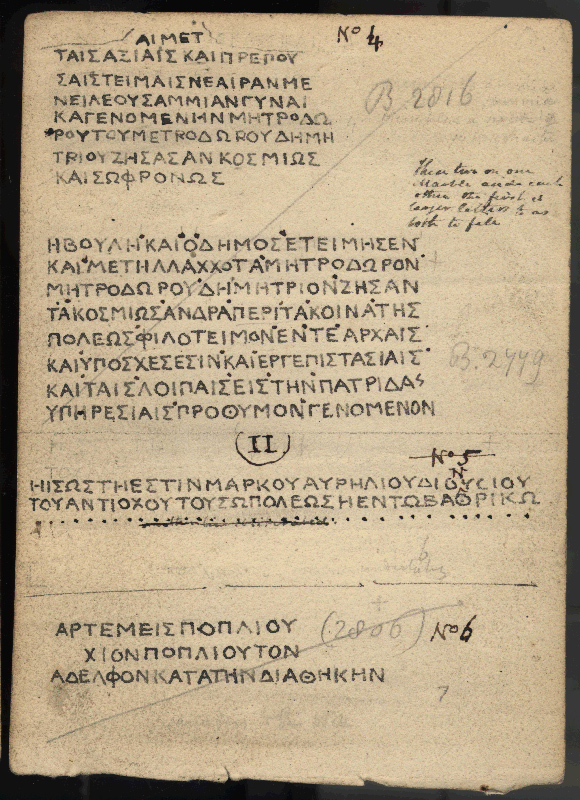 ΑΙΜΕΤ
Nº 4
ΤΑΙΣΑΞΙΑΙΣΚΑΙΠΡΕΠΟΥ
ΣΑΙΣΤΕΙΜΑΙΣΝΕΑΙΡΑΝΜΕ
ΝΕΙΛΕΟΥΣΑΜΜΙΑΝΓΥΝΑΙ
B. 2816
ΚΑΓΕΝΟΜΕΝΗΝΜΗΤΡΟΔΩ
ΡΟΥΤΟΥΜΕΤΡΟΔΩΡΟΥΔΗΜΗ
ΤΡΙΟΥΖΗΣΑΣΑΝΚΟΣΜΙΩΣ
ΚΑΙΣΩΦΡΟΝΩΣ
These two on one
Marble
other the first is
larger letters & as
both to
ΗΒΟΥΛΗΚΑΙΟΔΗΜΟΣΕΤΕΙΜΗΣΕΝ
ΚΑΙΜΕΤΗΛΛΑΧΧΟΤΑΜΗΤΡΟΔΩΡΟΝ
ΜΗΤΡΟΔΩΡΟΥΔΗΜΗΤΡΙΟΝΖΗΣΑΝ
ΤΑΚΟΣΜΙΩΣΑΝΔΡΑΠΕΡΙΤΑΚΟΙΝΑΤΗΣ
ΠΟΛΕΩΣΦΙΛΟΤΕΙΜΟΝΕΝΤΕΑΡΧΑΙΣ
ΚΑΙΥΠΟΣΧΕΣΕΣΙΝΚΑΙΕΡΓΕΠΙΣΤΑΣΙΑΙΣ
B. 2779
ΚΑΙΤΑΙΣΛΟΙΠΑΙΣΕΙΣΤΗΝΠΑΤΡΙΔΑΣ
ΥΠΗΡΕΣΙΑΙΣΠΡΟΘΥΜΟΝΓΕΝΟΜΕΝΟΝ
II
Nº 5
ΗΣΩΣΤΗΕΣΤΙΝΜΑΡΚΟΥΑΥΡΗΛΙΟΥΔΙΟΥΣΙΟΥ
ΤΟΥΑΝΤΙΟΧΟΥΤΟΥΣΩΠΟΛΕΩΣΗΕΝΤΩΒΑΘΡΙΚΩ
ΑΡΤΕΜΕΙΣΠΟΠΛΙΟΥ (2806) Nº 6
ΧΙΟΝΠΟΠΛΙΟΥΤΟΝ
ΑΔΕΛΦΟΝΚΑΤΑΤΗΝΔΙΑΘΗΚΗΝ
7